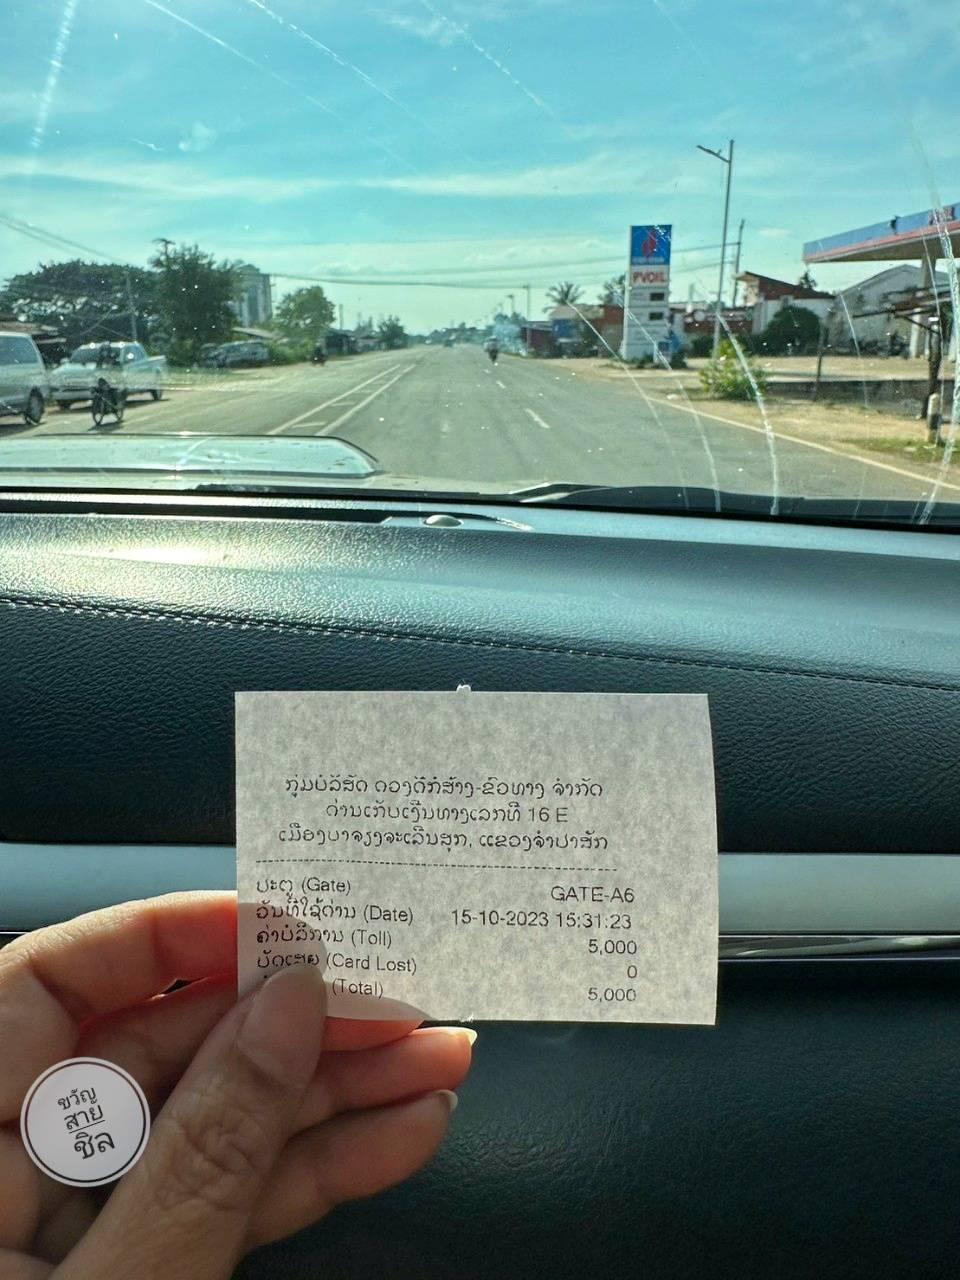 PVOIL
ກຸ່ມບໍລິສັດ ດວງດີກໍ່ສ້າງ-ຂົວທາງ ຈໍາກັດ
ດ່ານເກັບເງິນທາງເລກທີ 16 E
ເມືອງບາຈຽງຈະເລີນສຸກ, ແຂວງຈໍາປາສັກ
ປະຕູ (Gate) GATE-A6
ວັນທີໃຊ້ດ່ານ (Date) 15-10-2023 15:31:23
ຄ່າບໍລິການ (Toll) 5,000
ບັດເສຍ (Card Lost) 0
(Total) 5,000
ขวัญ
สาย
ชิล